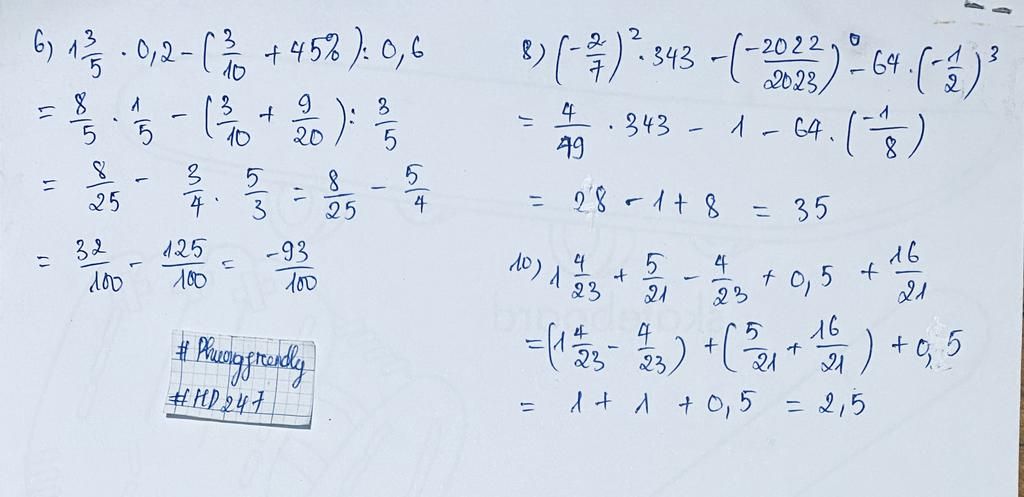 6) 1 3/5 · 0,2 - (3/10 + 45%) : 0,6
= 8/5 · 1/5 - (3/10 + 9/20) : 3/5
= 8/25 - 3/4 · 5/3 = 8/25 - 5/4
= 32/100 - 125/100 = -93/100
# Phuongfreendly
# HD247
8) (-2/7)² · 343 - (-2022/2023)⁰ - 64 · (-1/2)³
= 4/49 · 343 - 1 - 64 · (-1/8)
= 28 - 1 + 8 = 35
10) 1 4/23 + 5/21 - 4/23 + 0,5 + 16/21
= (1 4/23 - 4/23) + (5/21 + 16/21) + 0,5
= 1 + 1 + 0,5 = 2,5